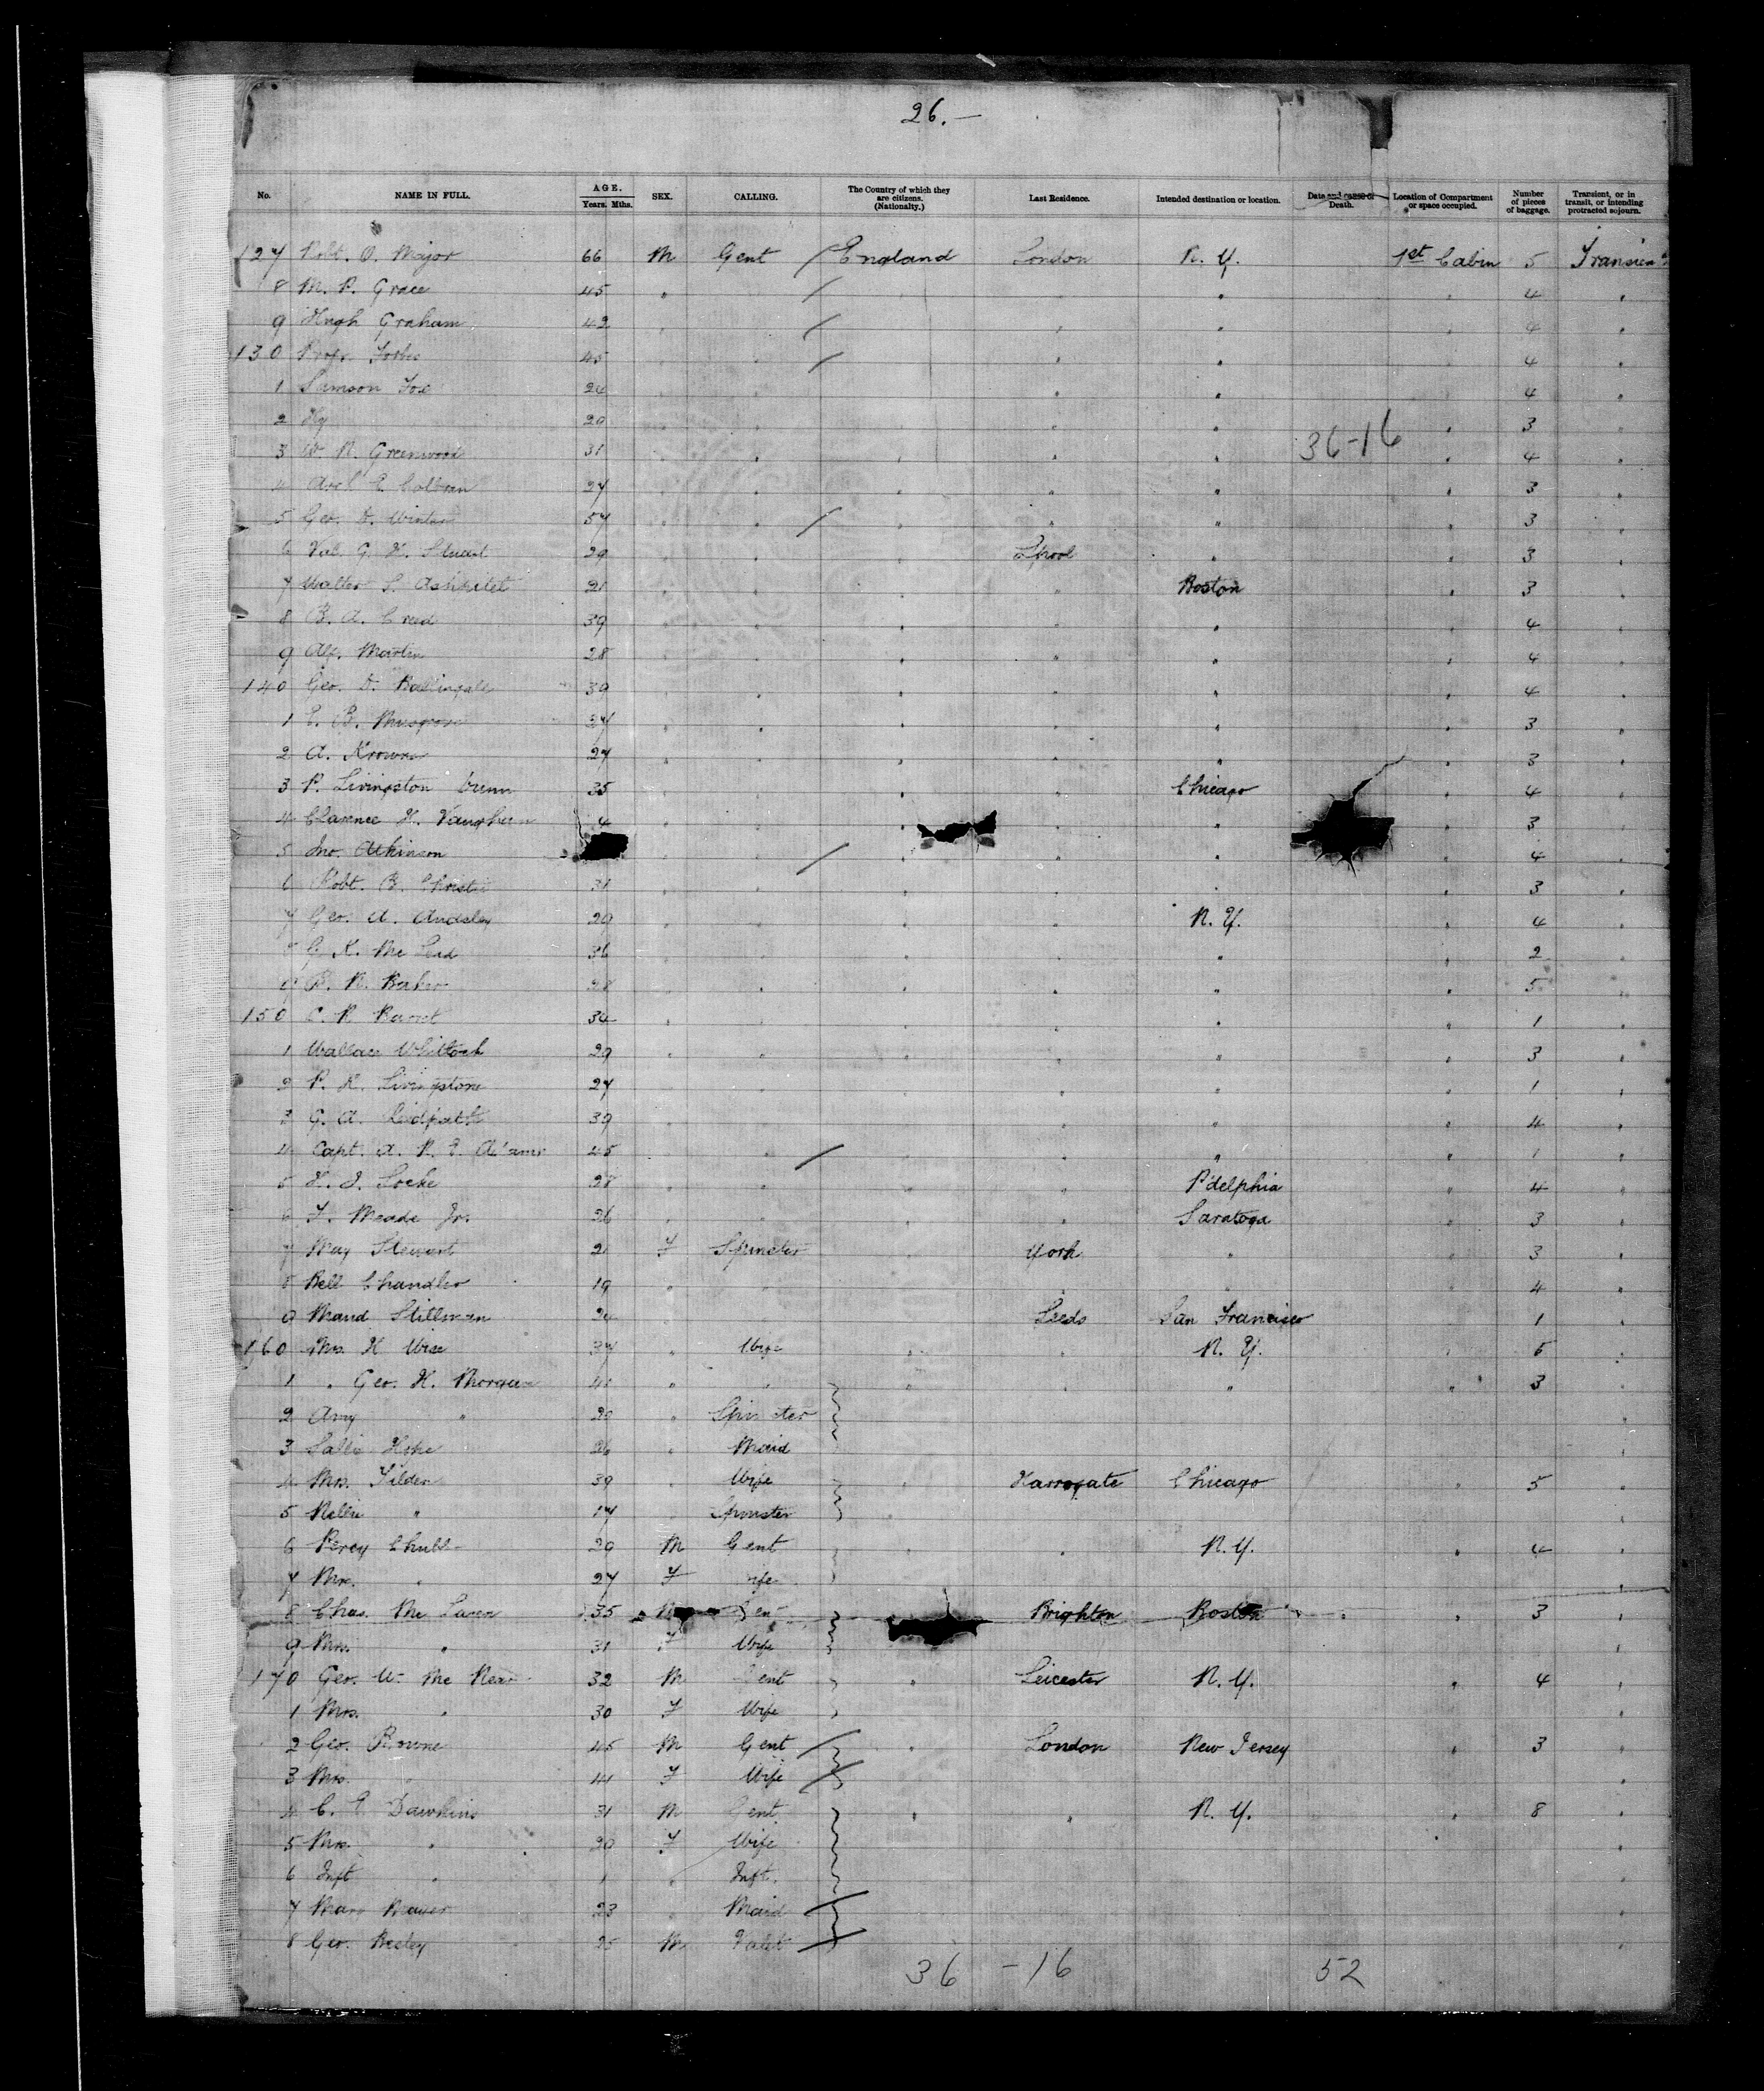 26.—
No. NAME IN FULL. AGE. Years. Mths. SEX. CALLING. The Country of which they are citizens. (Nationalty.) Last Residence. Intended destination or location. Date and cause of Death. Location of Compartment or space occupied. Number of pieces of baggage. Transient, or in transit, or intending protracted sojourn.
127 Robt. O. Major 66 M Gent England London N. Y. 1st Cabin 5 Transient
8 M. P. Grace 45 " " " " " " 4 "
9 Hugh Graham 42 " " " " " " 4 "
130 Profr. Forbes 45 " " " " " " 4 "
1 Samson Fox 24 " " " " " " 4 "
2 Hy 20 " " " " " " 3 "
36-16
3 W. R. Greenwood 31 " " " " " " 4 "
4 27 " " " " " " 3 "
5 Geo. D. 57 " " " " " " 3 "
6 29 " " " Lpool " " 3 "
7 Walter S. 21 " " " " Boston " 3 "
8 B. A. Creed 39 " " " " " " 4 "
9 Alf. Martin 28 " " " " " " 4 "
140 Geo. D. Ballingall 39 " " " " " " 4 "
1 E. B. Musgrove 27 " " " " " " 3 "
2 A. 27 " " " " " " 3 "
3 P. Livingston Dunn 35 " " " " Chicago " 4 "
4 Clarence H. Vaughan 4 " " " " " " 3 "
5 Jno. Atkinson " " " " " " 4 "
6 Robt. B. Christie 31 " " " " " " 3 "
7 Geo. A. Audsley 20 " " " " N. Y. " 4 "
8 G. K. Mc 36 " " " " " " 2 "
9 B. N. Baker 28 " " " " " " 5 "
150 34 " " " " " " 1 "
1 Wallace Whitlock 29 " " " " " " 3 "
2 P. H. Livingstone 27 " " " " " " 1 "
3 G. A. Reidpath 39 " " " " " " 4 "
4 Capt. A. R. E. Adams 45 " " " " " " 1 "
5 Locke 28 " " " " P'delphia " 4 "
6 F. Meade Jr. 26 " " " " Saratoga " 3 "
7 May Stewart 21 F Spinster " York " " 3 "
8 Bell Chandler 19 " " " " " " 4 "
9 Maud Stillman 24 " " " Leeds San Francisco " 1 "
160 Mrs. H Wise 37 " Wife " " N. Y. " 5 "
1 " Geo. H. Morgan 41 " " " " " " 3 "
2 Amy " 20 " Spinster "
3 Sallie 26 " Maid "
4 Mrs. Tilden 39 " Wife " Harrogate Chicago " 5 "
5 Nellie " 17 " Spinster "
6 Percy Chubb 29 M Gent " " N. Y. " 4 "
7 Mrs. " 27 F Wife "
8 Chas. Mc 35 M Gent Brighton Boston " 3 "
9 Mrs. " 31 F Wife "
170 Geo. W. Mc Near 32 M Gent " Leicester N. Y. " 4 "
1 Mrs. " 30 F Wife "
2 Geo. Browne 45 M Gent " London New Jersey " 3 "
3 Mrs. " 41 F Wife "
4 C. E. Dawkins 31 M Gent " " N. Y. " 8 "
5 Mrs. " 20 F Wife "
6 Inft " 1 " Inft. "
7 23 " Maid "
8 Geo. Besley 25 M Valet "
36 -16 52